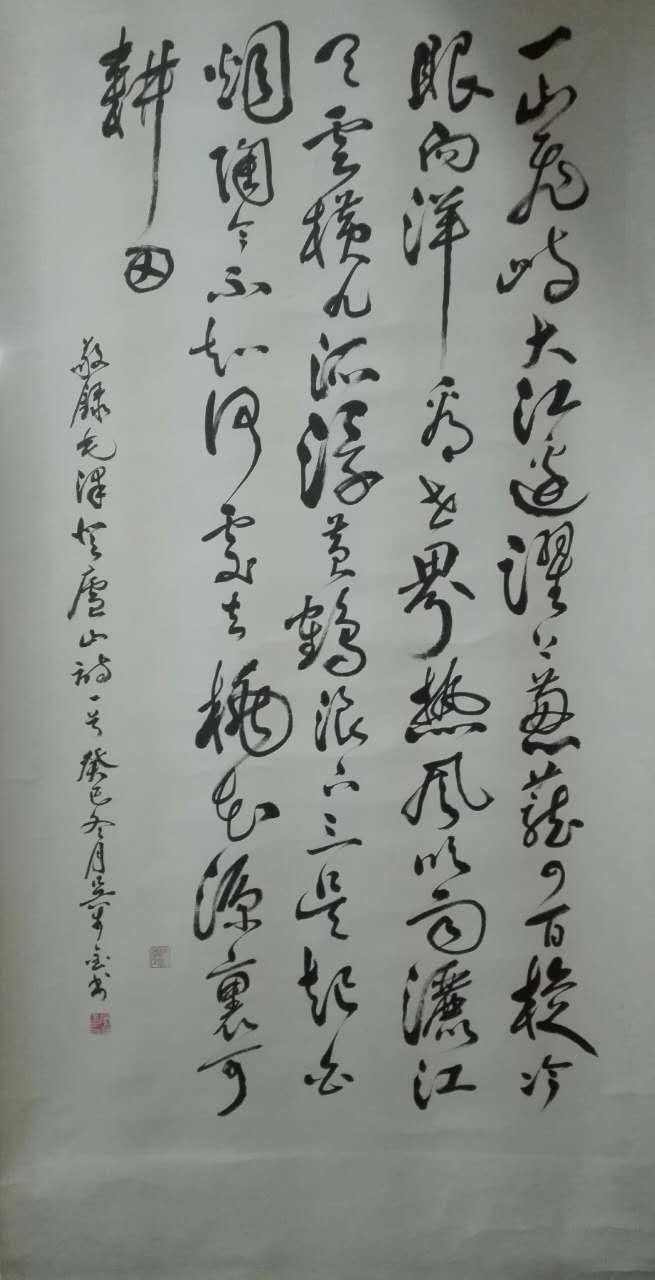 一山飛峙大江邊躍上蔥蘢四百旋冷
眼向洋看世界熱風吹雨灑江
天雲橫九派浮黃鶴浪下三吳起白
烟陶令不知何處去桃花源裏可
耕田
敬錄毛澤登廬山詩一首癸巳冬月書